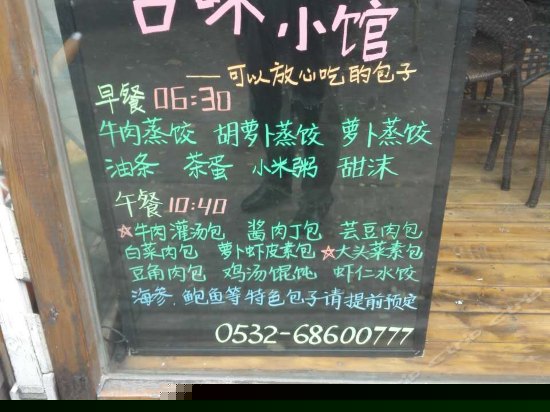 口味
小馆
——可以放心吃的包子
早餐 06:30
牛肉蒸饺 胡萝卜蒸饺 萝卜蒸饺
油条 茶蛋 小米粥 甜沫
午餐 10:40
☆牛肉灌汤包 酱肉丁包 芸豆肉包
白菜肉包 萝卜虾皮素包 ☆大头菜素包
豆角肉包 鸡汤馄饨 虾仁水饺
海参.鲍鱼等特色包子请提前预定
0532-68600777